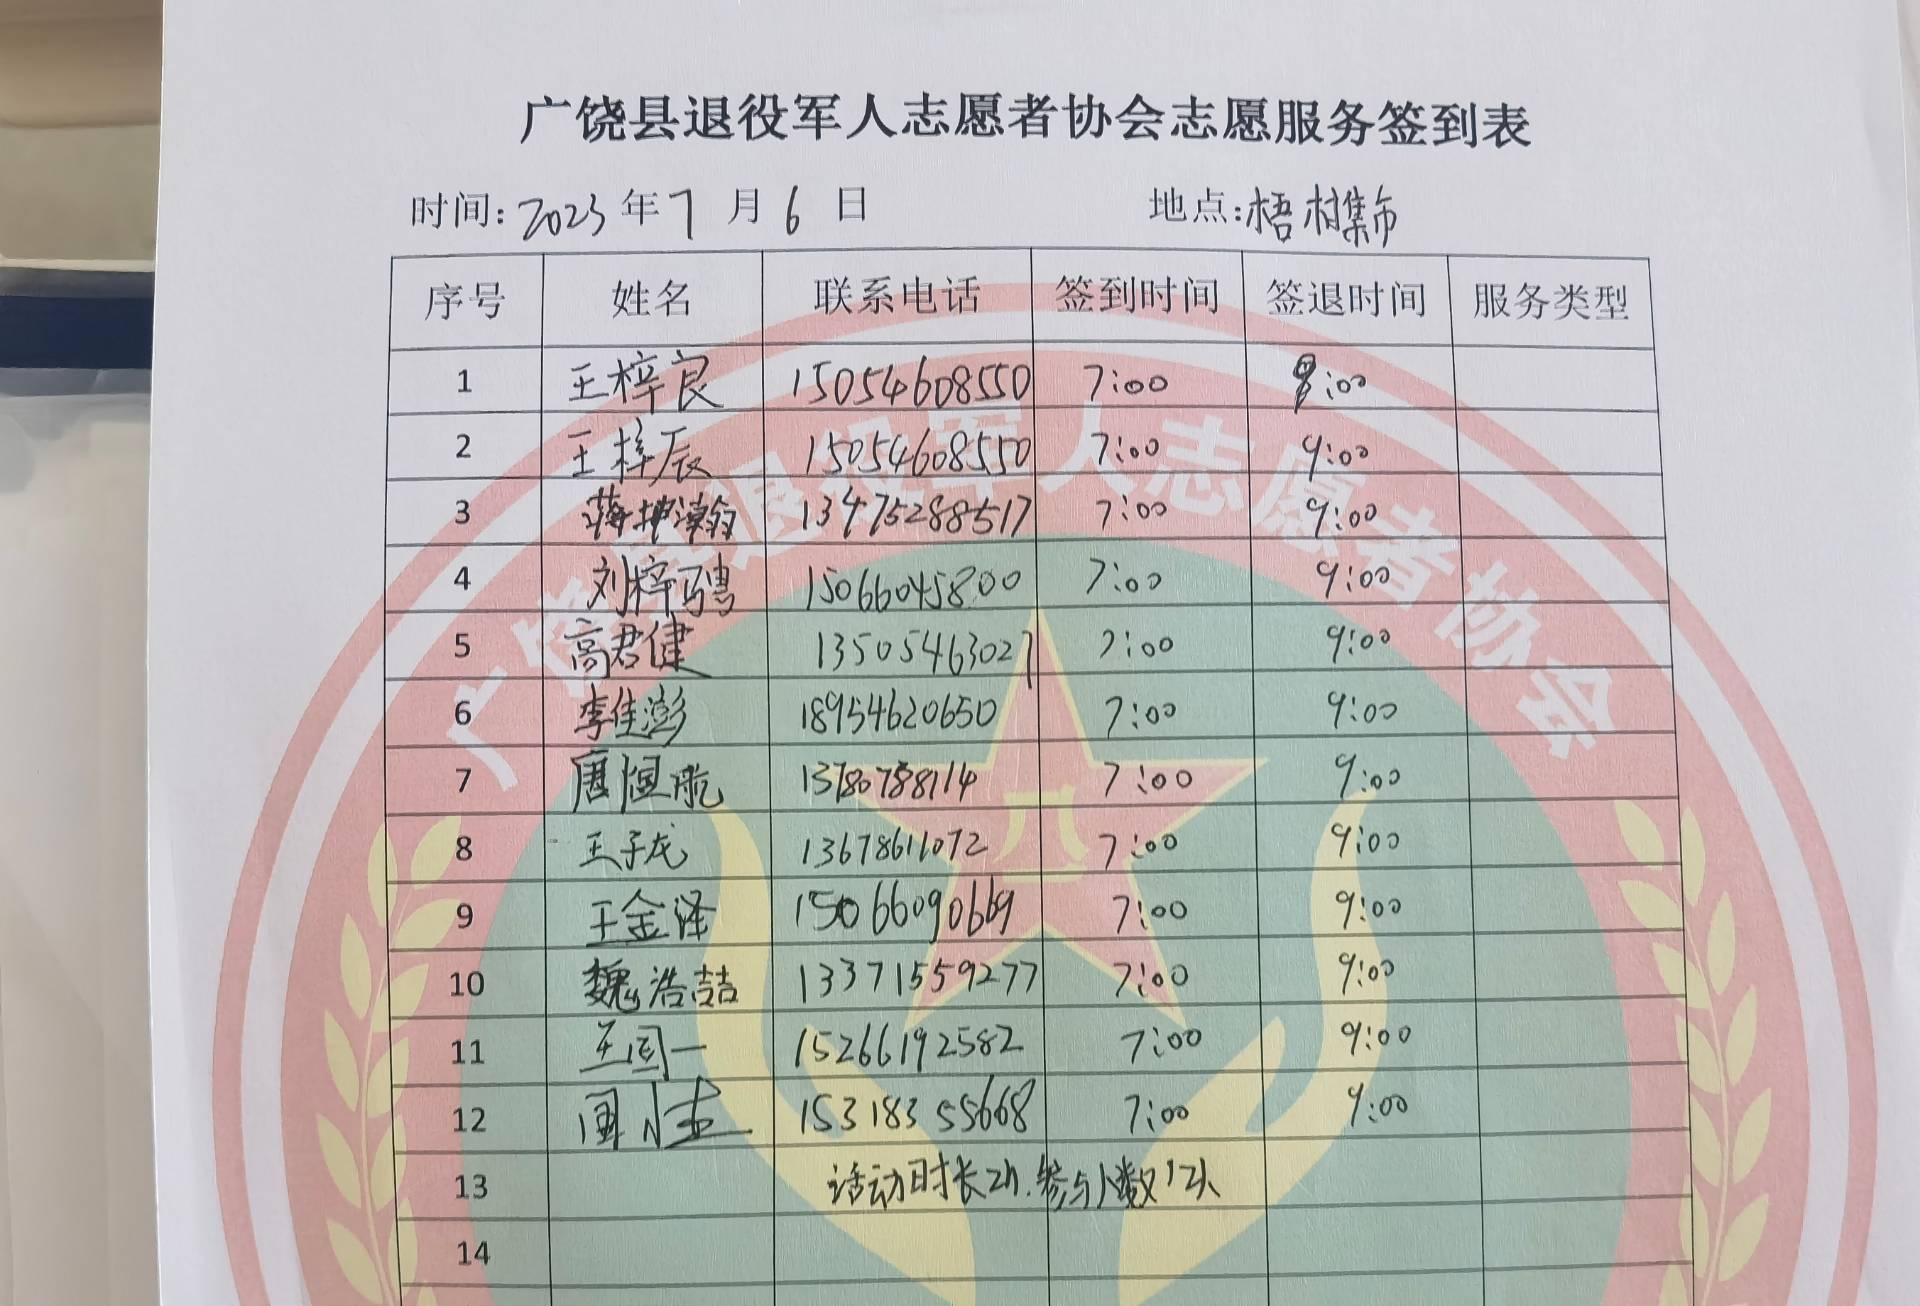 广饶县退役军人志愿者协会志愿服务签到表
时间: 2023 年 7 月 6 日 地点:梧村集市
序号 姓名 联系电话 签到时间 签退时间 服务类型
1 王梓良 15054608550 7:00 9:00
2 王梓辰 15054608550 7:00 9:00
3 13475288517 7:00 9:00
4 刘梓骋 15066045800 7:00 9:00
5 高君健 13505463027 7:00 9:00
6 李佳澎 18954620650 7:00 9:00
7 唐恒航 13780788114 7:00 9:00
8 王子龙 13678611072 7:00 9:00
9 王金泽 15066090669 7:00 9:00
10 魏浩喆 13371559277 7:00 9:00
11 一 15266192582 7:00 9:00
12 15318355668 7:00 9:00
13 活动时长2h.参与人数12人
14
广饶县退役军人志愿者协会
八一